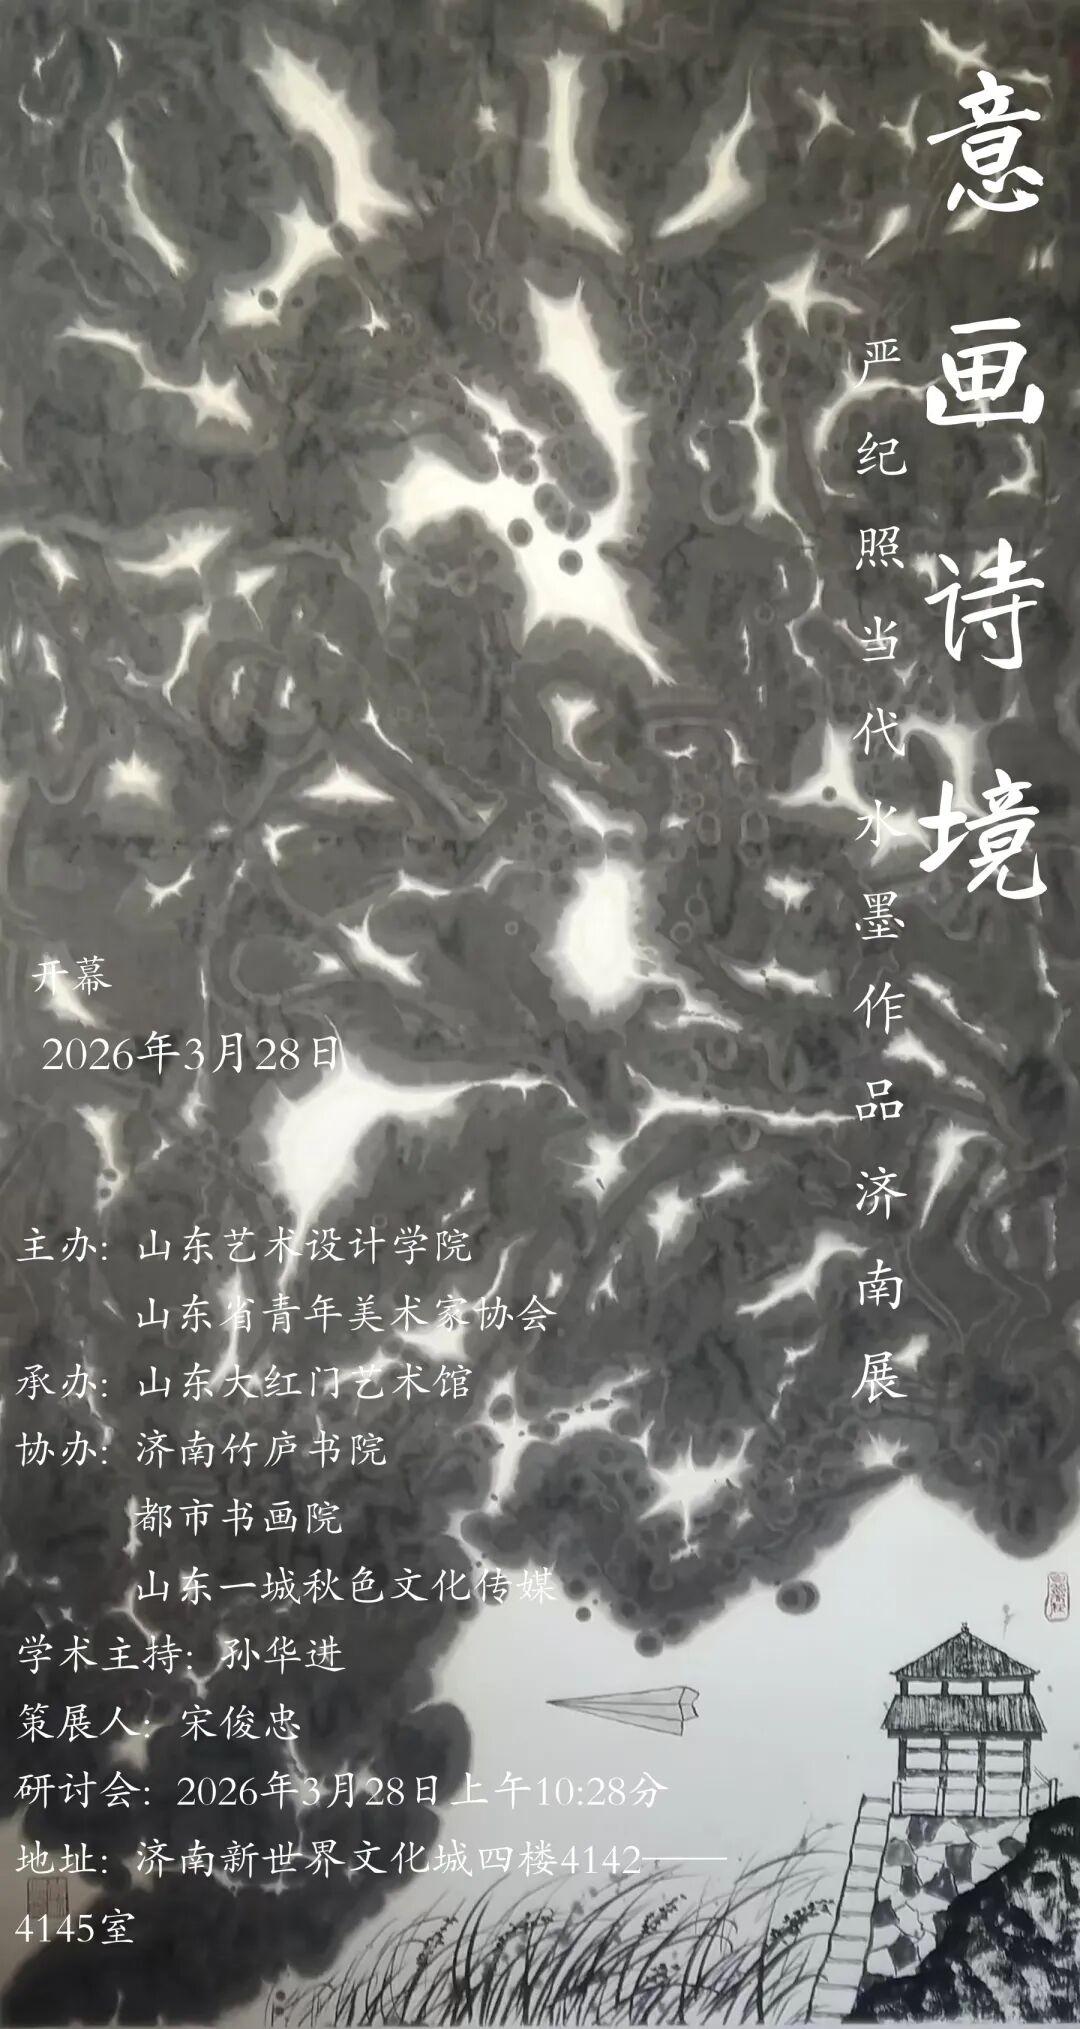 意画诗境
严纪照当代水墨作品济南展
开幕
2026年3月28日
主办：山东艺术设计学院
山东省青年美术家协会
承办：山东大红门艺术馆
协办：济南竹庐书院
都市书画院
山东一城秋色文化传媒
学术主持：孙华进
策展人：宋俊忠
研讨会：2026年3月28日上午10:28分
地址：济南新世界文化城四楼4142——
4145室